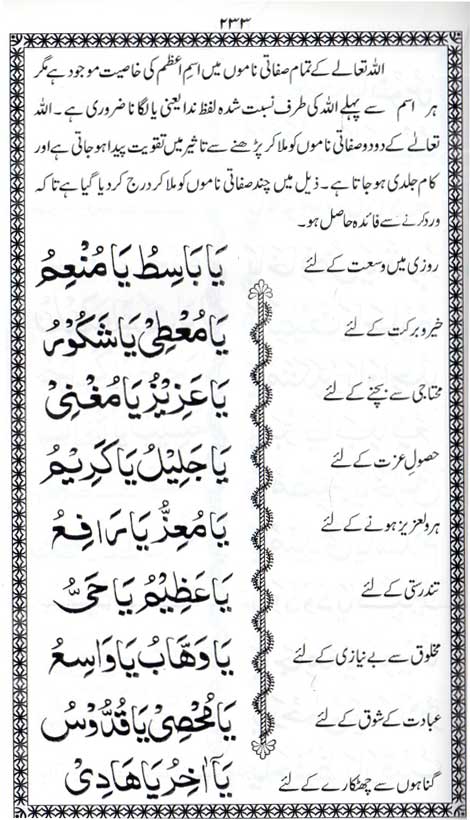 ۲۳۳
اللہ تعالےٰ کے تمام صفاتی ناموں میں اسمِ اعظم کی خاصیت موجود ہے مگر
ہر اسم سے پہلے اللہ کی طرف نسبت شدہ لفظ ندا یعنی یا لگانا ضروری ہے۔ اللہ
تعالےٰ کے دو دو صفاتی ناموں کو ملا کر پڑھنے سے تاثیر میں تقویت پیدا ہو جاتی ہے اور
کام جلدی ہو جاتا ہے۔ ذیل میں چند صفاتی ناموں کو ملا کر درج کر دیا گیا ہے تا کہ
ورد کرنے سے فائدہ حاصل ہو۔
روزی میں وسعت کے لئے يَا بَاسِطُ يَا مُنْعِمُ
خیر و برکت کے لئے يَا مُعْطِیْ يَا شَكُوْرُ
محتاجی سے بچنے کے لئے يَا عَزِيْزُ يَا مُغْنِیْ
حصولِ عزت کے لئے يَا جَلِيْلُ يَا كَرِيْمُ
ہر دلعزیز ہونے کے لئے يَا مُعِزُّ يَا رَافِعُ
تندرستی کے لئے يَا عَظِيْمُ يَا حَیُّ
مخلوق سے بے نیازی کے لئے يَا وَهَّابُ يَا وَاسِعُ
عبادت کے شوق کے لئے يَا مُحْصِیْ يَا قُدُّوْسُ
گناہوں سے چھٹکارے کے لئے يَآ اٰخِرُ يَا هَادِیْ